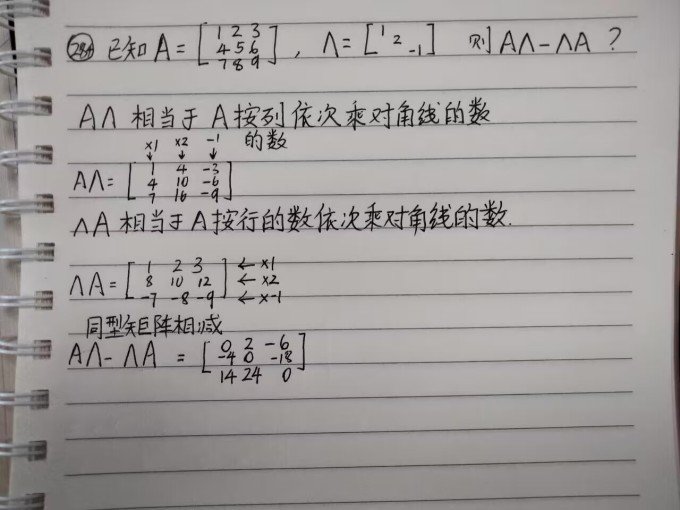 284 已知A=[1 2 3 4 5 6 7 8 9], Λ=[1 2 -1] 则AΛ-ΛA?
AΛ相当于A按列依次乘对角线的数
的数
×1 ×2 -1
↓ ↓ ↓
AΛ=[1 4 -3 4 10 -6 7 16 -9]
ΛA相当于A按行的数依次乘对角线的数.
ΛA=[1 2 3 8 10 12 -7 -8 -9] ←×1 ←×2 ←×-1
同型矩阵相减
AΛ-ΛA =[0 2 -6 -4 0 -18 14 24 0]